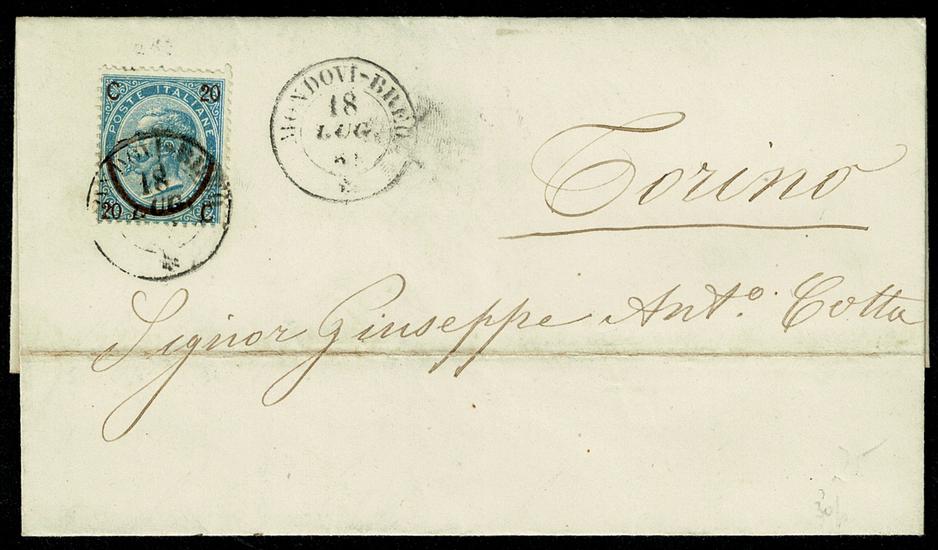 C 20
POSTE ITALIANE
20 C
18
LUG
MONDOVI-BREO
18
LUG.
Torino
Signor Giuseppe Ant.º Cotta